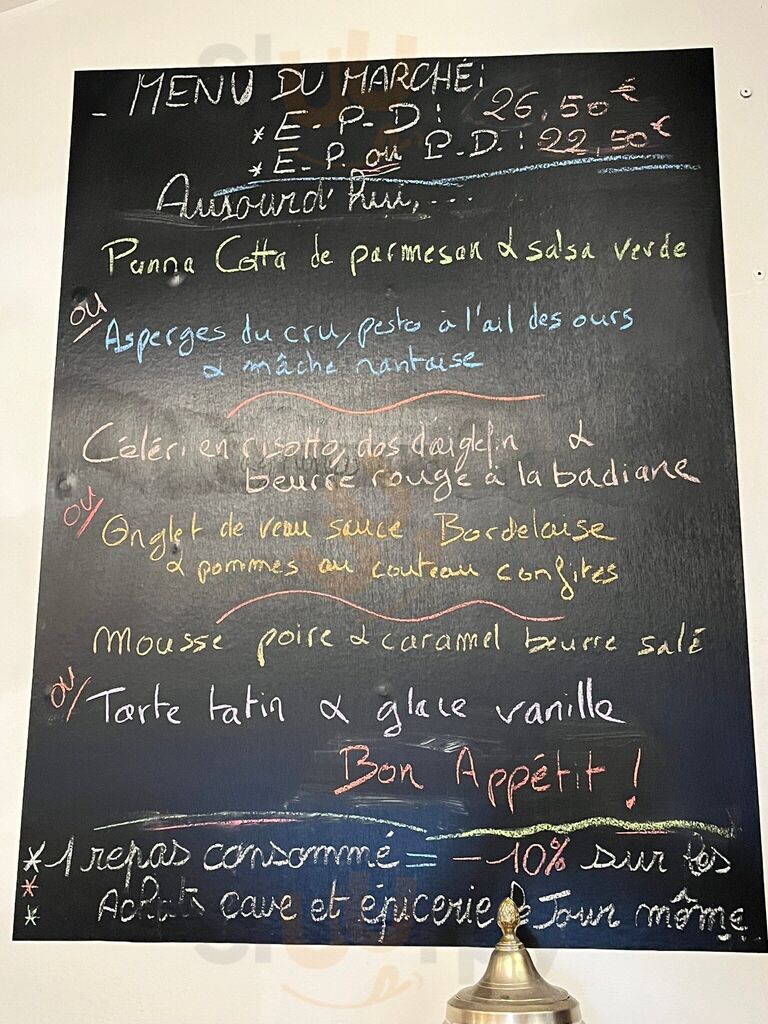 - MENU DU MARCHÉ:
* E-P-D: 26,50€
* E-P. ou P-D.: 22,50€
Aujourd'hui,...
Panna Cotta de parmesan & salsa verde
ou
Asperges du cru, pesto à l'ail des ours
& mâche nantaise
Céléri en risotto, dos d'aiglefin &
beurre rouge à la badiane
ou
Onglet de veau sauce Bordelaise
& pommes au couteau confites
Mousse poire & caramel beurre salé
ou
Tarte tatin & glace vanille
Bon Appétit!
* 1 repas consommé = -10% sur les
* Achats cave et épicerie le Jour même
*